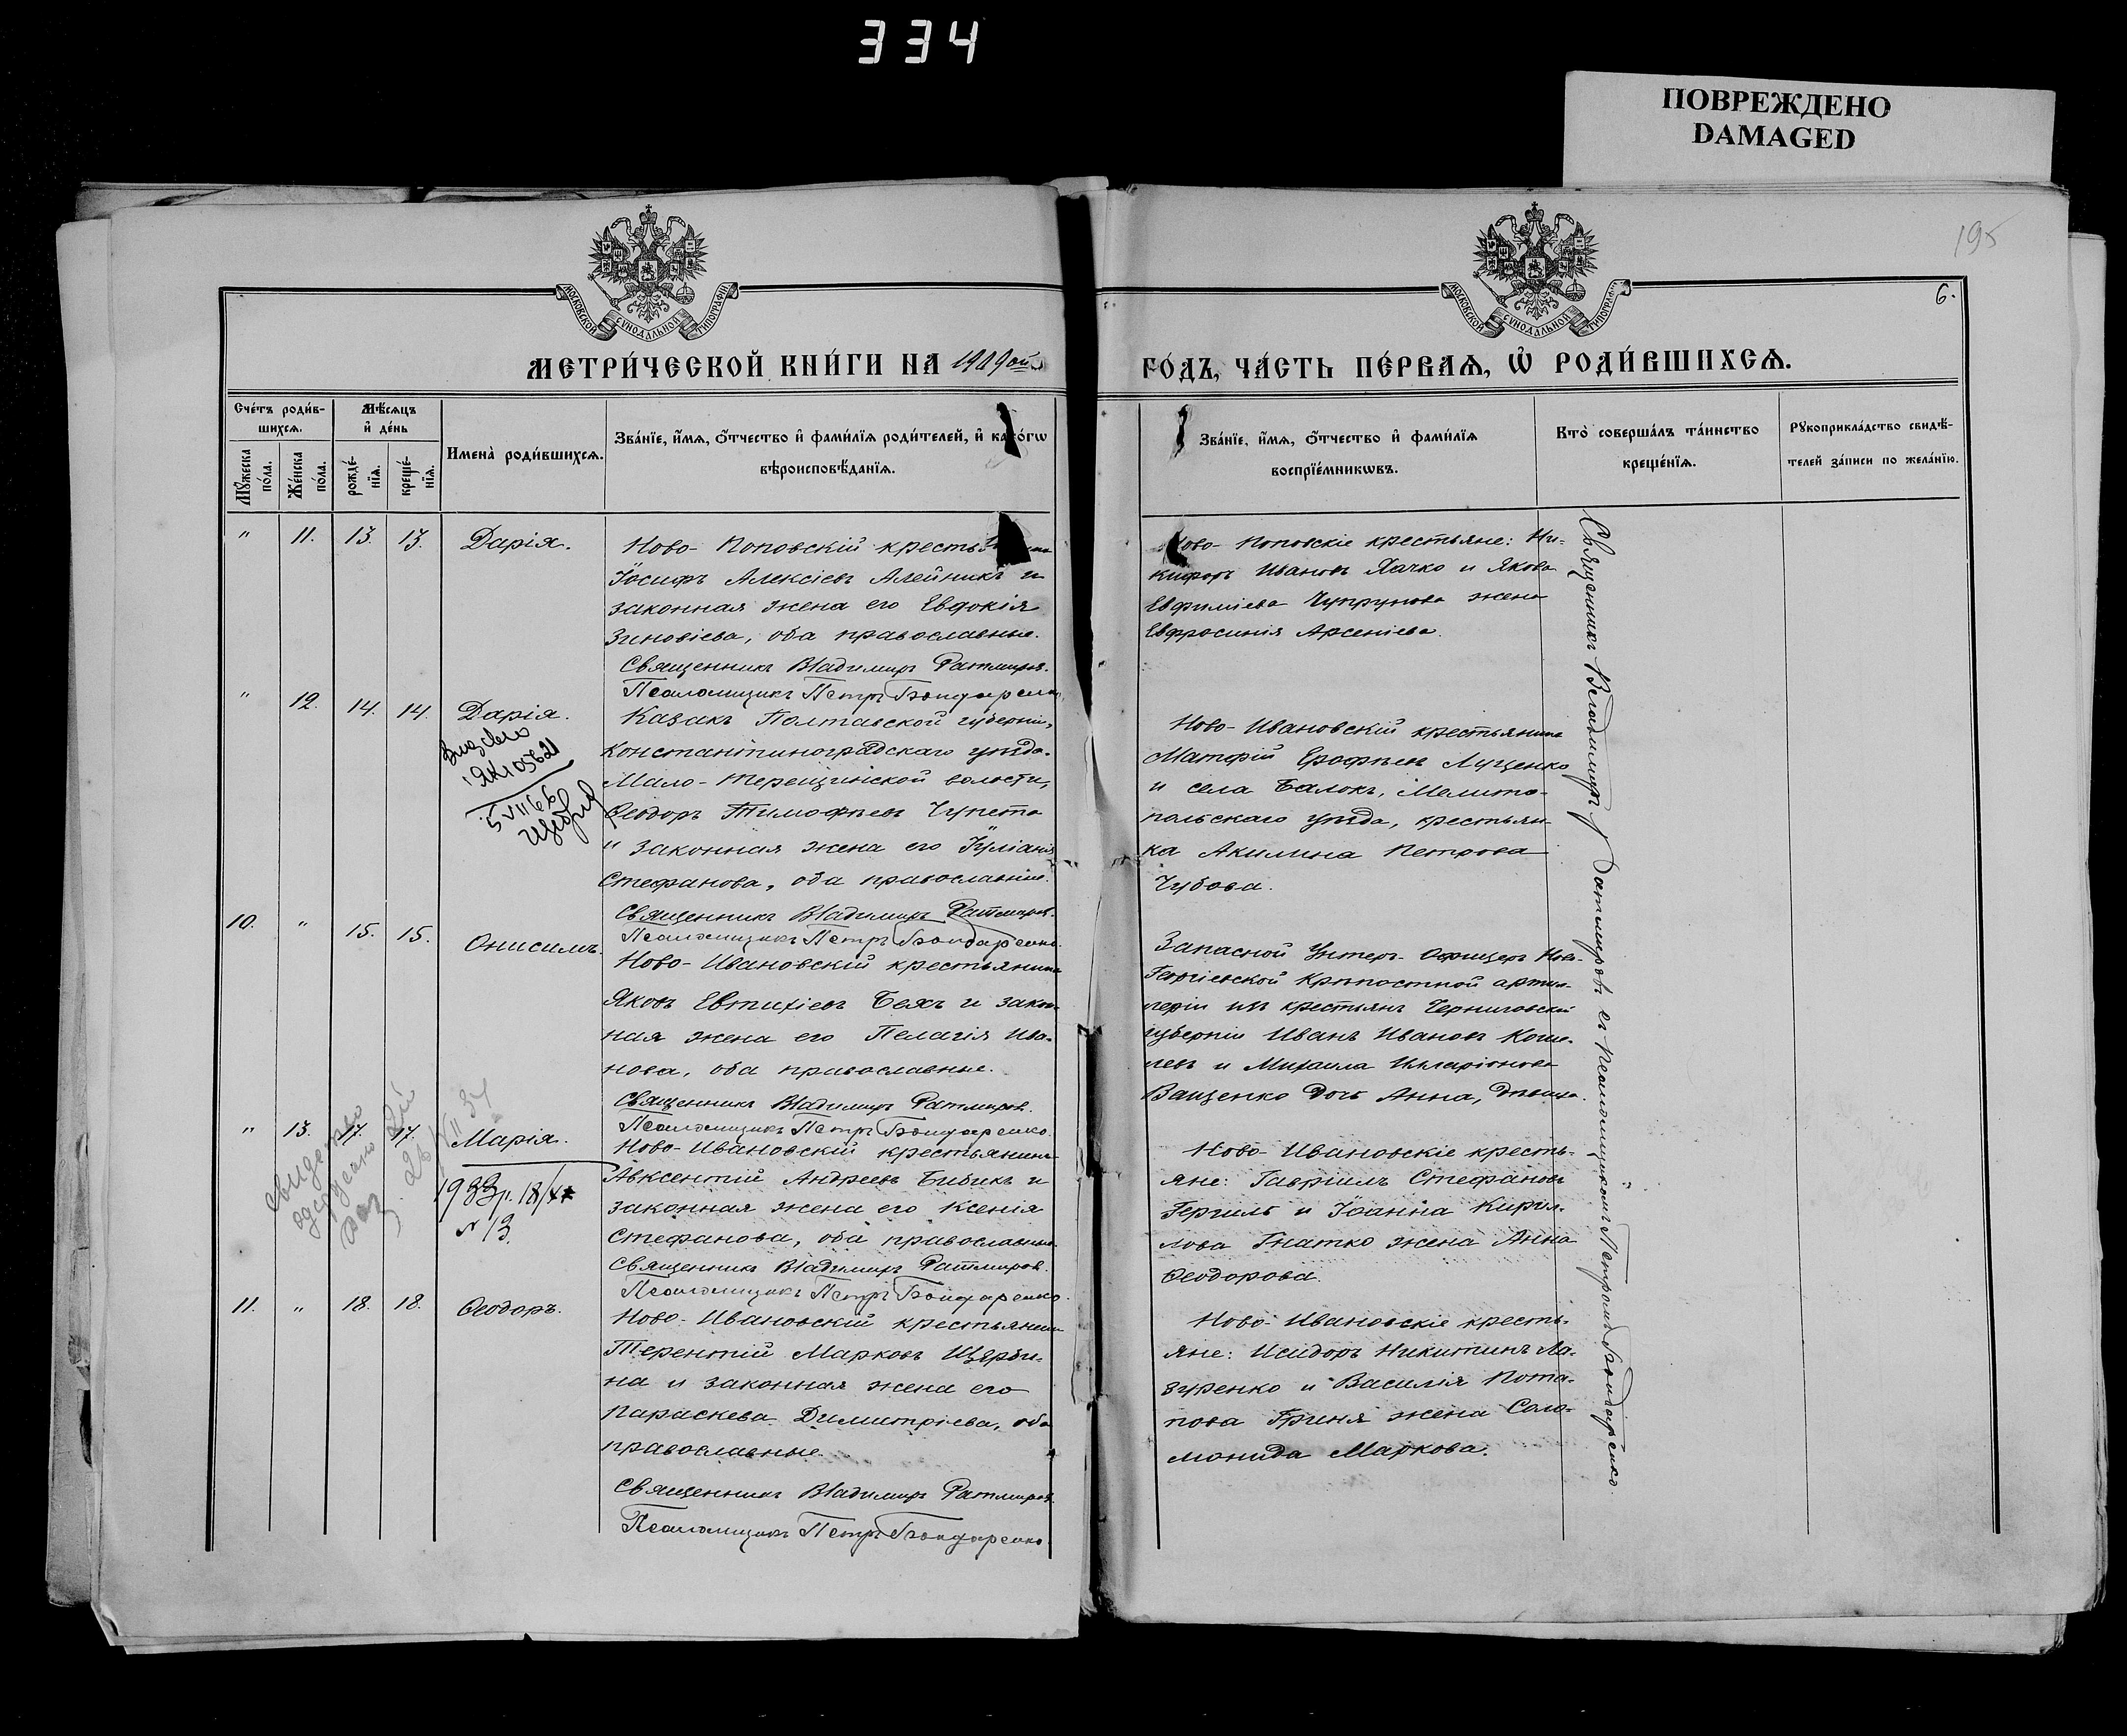 334
ПОВРЕЖДЕНО
DAMAGED
195
6.
МОСКОВСКОЙ СУНОДАЛЬНОЙ ТИПОГРАФІИ
МОСКОВСКОЙ СУНОДАЛЬНОЙ ТИПОГРАФІИ
МЕТРИ́ЧЕСКОЙ КНИ́ГИ НА 1909ый
ГО́ДЪ, ЧА́СТЬ ПЕ́РВАѦ, Ѡ҆ РОДИ́ВШИХСѦ.
Сче́тъ роди́в-
шихсѧ.
Мѣ́сѧцъ
и҆ де́нь
Мꙋ́жеска
по́ла.
Же́нска
по́ла.
рожде́-
нїѧ.
креще́-
нїѧ.
Имена̀ роди́вшихсѧ.
Зва́нїе, и҆́мѧ, ѻ҆́тчество и҆ фами́лїѧ роди́телей, и҆ како́гѡ
вѣроисповѣ́данїѧ.
Зва́нїе, и҆́мѧ, ѻ҆́тчество и҆ фами́лїѧ
воспрїе́мникѡвъ.
Кто̀ соверша́лъ та́инство
креще́нїѧ.
Рꙋкоприкла́дство свидѣ́-
телей за́писи по жела́нїю.
" 11. 13. 13. Дарія.
Ново-Поповскій
Іосифъ Алексіевъ Алейникъ и
законная жена его Евдокія
Зиновіева, оба православные.
Священникъ Владимиръ Ратмировъ.
Псаломщикъ Петръ Бондаренко
Ново-Поповскіе крестьяне: Ни-
кифоръ Ивановъ Хачко и Якова
Евфиміева Чупрунова жена
Евфросинія Арсеніева.
" 12. 14. 14. Дарія.
5 VII 66
Казакъ Полтавской губерніи,
Константиноградскаго уѣзда.
Мало-Терещинской волости,
Ѳеодоръ Тимоѳеевъ Чупета
и законная жена его Іуліанія
Стефанова, оба православные.
Священникъ Владимиръ Ратмировъ.
Псаломщикъ Петръ Бондаренко.
Ново-Ивановскій крестьянинъ
Матѳій Ерофѣевъ Луценко
и села Балокъ, Мелито-
польскаго уѣзда, крестьян-
ка Акилина Петрова
Чубова.
10. " 15. 15. Онисимъ.
Ново-Ивановскій крестьянинъ
Яковъ Евтихіевъ Бехъ и закон-
ная жена его Пелагія Ива-
нова, оба православные.
Священникъ Владимиръ Ратмировъ.
Псаломщикъ Петръ Бондаренко.
Запасной Унтеръ-Офицеръ Ново-
Георгіевской Крѣпостной артил-
леріи изъ крестьянъ Черниговской
губерніи Иванъ Ивановъ Коше-
левъ и Михаила Илларіонова
Ващенко дочь Анна, дѣвица.
" 13. 17. 17. Марія.
1933р. 18/
N 13.
Ново-Ивановскій крестьянинъ
Авксентій Андреевъ Бибикъ и
законная жена его Ксенія
Стефанова, оба православные.
Священникъ Владимиръ Ратмировъ.
Псаломщикъ Петръ Бондаренко.
Ново-Ивановскіе кресть-
яне: Гавріилъ Стефановъ
Гергиль и Іоанна Кирил-
лова Гнатко жена Анна
Ѳеодорова.
11. " 18. 18. Ѳеодоръ.
Ново-Ивановскій крестьянинъ
Терентій Марковъ Щерби-
на и законная жена его
Параскева Димитріева, оба
православные.
Священникъ Владимиръ Ратмировъ.
Псаломщикъ Петръ Бондаренко.
Ново-Ивановскіе кресть-
яне: Исидоръ Никитинъ Ла-
зуренко и Василія Пота-
пова Гриня жена Соло-
монида Маркова.
Священникъ Владимиръ Ратмировъ съ псаломщикомъ Петромъ Бондаренко.